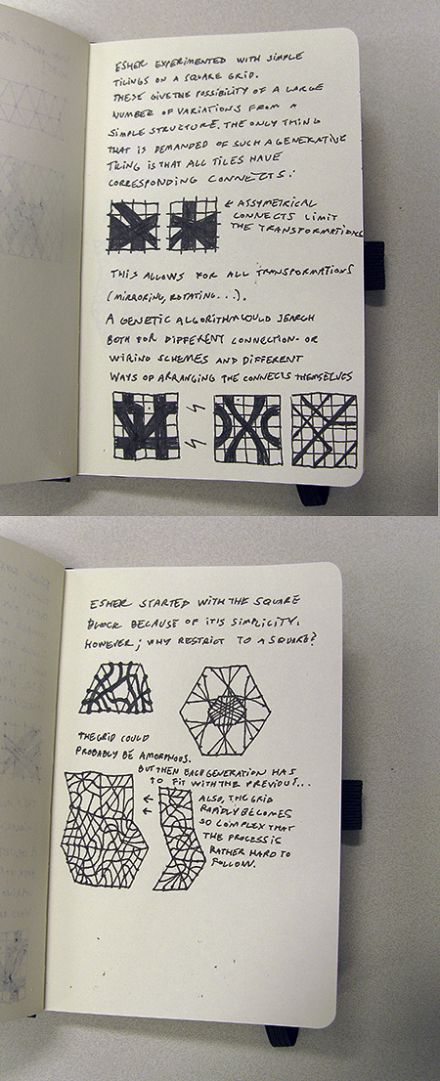 ESHER EXPERIMENTED WITH SIMPLE
TILINGS ON A SQUARE GRID.
THESE GIVE THE POSSIBILITY OF A LARGE
NUMBER OF VARIATIONS FROM A
SIMPLE STRUCTURE. THE ONLY THING
THAT IS DEMANDED OF SUCH A GENERATIVE
TILING IS THAT ALL TILES HAVE
CORRESPONDING CONNECTS:
← ASSYMETRICAL
CONNECTS LIMIT
THE TRANSFORMATIONS
THIS ALLOWS FOR ALL TRANSFORMATIONS
(MIRRORING, ROTATING...).
A GENETIC ALGORITHM COULD SEARCH
BOTH FOR DIFFERENT CONNECTION- OR
WIRING SCHEMES AND DIFFERENT
WAYS OF ARRANGING THE CONNECTS THEMSELVES
ESHER STARTED WITH THE SQUARE
BLOCK BECAUSE OF IT'S SIMPLICITY.
HOWEVER; WHY RESTRICT TO A SQUARE?
THE GRID COULD
PROBABLY BE AMORPHOUS.
BUT THEN EACH GENERATION HAS
TO FIT WITH THE PREVIOUS...
ALSO, THE GRID
RAPIDLY BECOMES
SO COMPLEX THAT
THE PROCESS IS
RATHER HARD TO
FOLLOW.